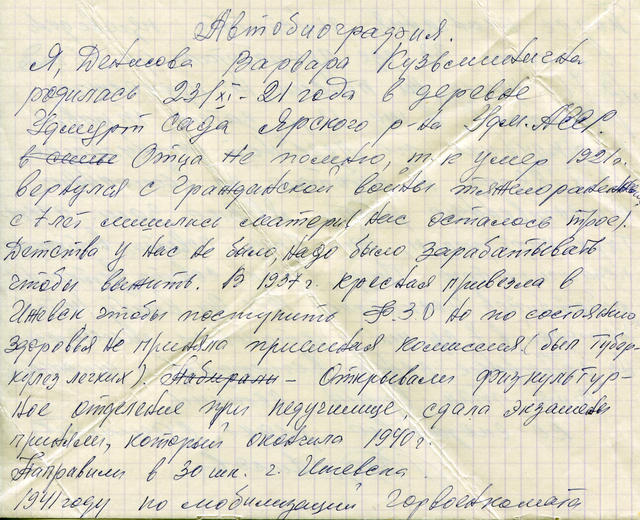 Автобиография.
Я, Денисова Варвара Кузьминична
родилась 23/XI-21 года в деревне
Удмурт сада Ярского р-на Удм. АССР.
в семье Отца не помню, т.к умер 1921г.
вернулся с Гражданской войны тяжелоранен
с 7 лет лишились матери (нас осталось трое).
Детства у нас не было, надо было зарабатывать
чтобы выжить. В 1937г. кресная привезла в
Ижевск чтобы поступить Ф.ЗО но по состоянию
здоровья не приняла приемная комиссия (был тубер-
кулез легких). Набирали - Открывали физкультур-
ное отделение при педучилище, сдала экзамены
приняли, который окончила 1940г.
Направили в 30 шк. г. Ижевска
1941 году по мобилизации Горвоенкомата